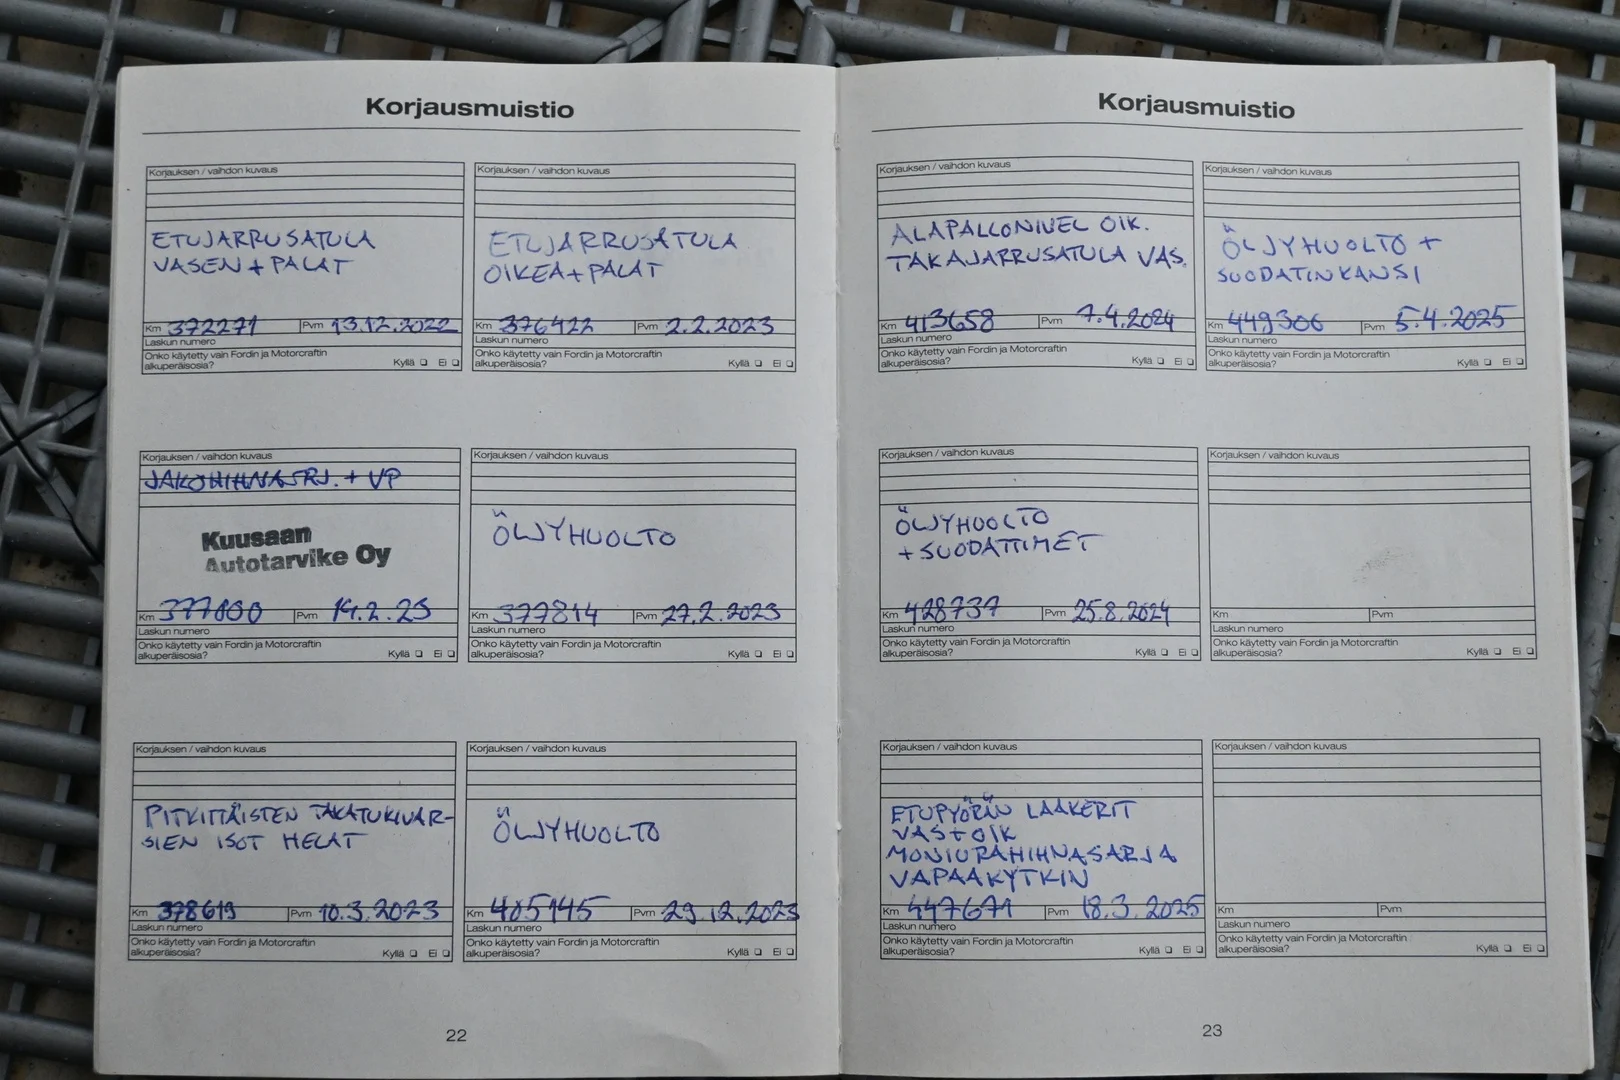 Korjausmuistio
Korjauksen / vaihdon kuvaus
ETUJARRUSATULA
VASEN + PALAT
Km 372271 Pvm 13.12.2022
Laskun numero
Onko käytetty vain Fordin ja Motorcraftin
alkuperäisosia? Kyllä ❏ Ei ❏
Korjauksen / vaihdon kuvaus
ETUJARRUSATULA
OIKEA + PALAT
Km 376422 Pvm 2.2.2023
Laskun numero
Onko käytetty vain Fordin ja Motorcraftin
alkuperäisosia? Kyllä ❏ Ei ❏
Korjauksen / vaihdon kuvaus
JAKOHIHNASRJ. + VP
Kuusaan
Autotarvike Oy
Km 377000 Pvm 14.2.23
Laskun numero
Onko käytetty vain Fordin ja Motorcraftin
alkuperäisosia? Kyllä ❏ Ei ❏
Korjauksen / vaihdon kuvaus
ÖLJYHUOLTO
Km 377814 Pvm 27.2.2023
Laskun numero
Onko käytetty vain Fordin ja Motorcraftin
alkuperäisosia? Kyllä ❏ Ei ❏
Korjauksen / vaihdon kuvaus
PITKITTÄISTEN TAKATUKIVAR-
SIEN ISOT HELAT
Km 378619 Pvm 10.3.2023
Laskun numero
Onko käytetty vain Fordin ja Motorcraftin
alkuperäisosia? Kyllä ❏ Ei ❏
Korjauksen / vaihdon kuvaus
ÖLJYHUOLTO
Km 405145 Pvm 29.12.2023
Laskun numero
Onko käytetty vain Fordin ja Motorcraftin
alkuperäisosia? Kyllä ❏ Ei ❏
22
Korjausmuistio
Korjauksen / vaihdon kuvaus
ALAPALLONIVEL OIK.
TAKAJARRUSATULA VAS.
Km 413658 Pvm 7.4.2024
Laskun numero
Onko käytetty vain Fordin ja Motorcraftin
alkuperäisosia? Kyllä ❏ Ei ❏
Korjauksen / vaihdon kuvaus
ÖLJYHUOLTO +
SUODATINKANSI
Km 449306 Pvm 5.4.2025
Laskun numero
Onko käytetty vain Fordin ja Motorcraftin
alkuperäisosia? Kyllä ❏ Ei ❏
Korjauksen / vaihdon kuvaus
ÖLJYHUOLTO
+ SUODATTIMET
Km 428737 Pvm 25.8.2024
Laskun numero
Onko käytetty vain Fordin ja Motorcraftin
alkuperäisosia? Kyllä ❏ Ei ❏
Korjauksen / vaihdon kuvaus
Km Pvm
Laskun numero
Onko käytetty vain Fordin ja Motorcraftin
alkuperäisosia? Kyllä ❏ Ei ❏
Korjauksen / vaihdon kuvaus
ETUPYÖRÄN LAAKERIT
VAS + OIK
MONIURAHIHNASARJA
VAPAAKYTKIN
Km 447671 Pvm 18.3.2025
Laskun numero
Onko käytetty vain Fordin ja Motorcraftin
alkuperäisosia? Kyllä ❏ Ei ❏
Korjauksen / vaihdon kuvaus
Km Pvm
Laskun numero
Onko käytetty vain Fordin ja Motorcraftin
alkuperäisosia? Kyllä ❏ Ei ❏
23